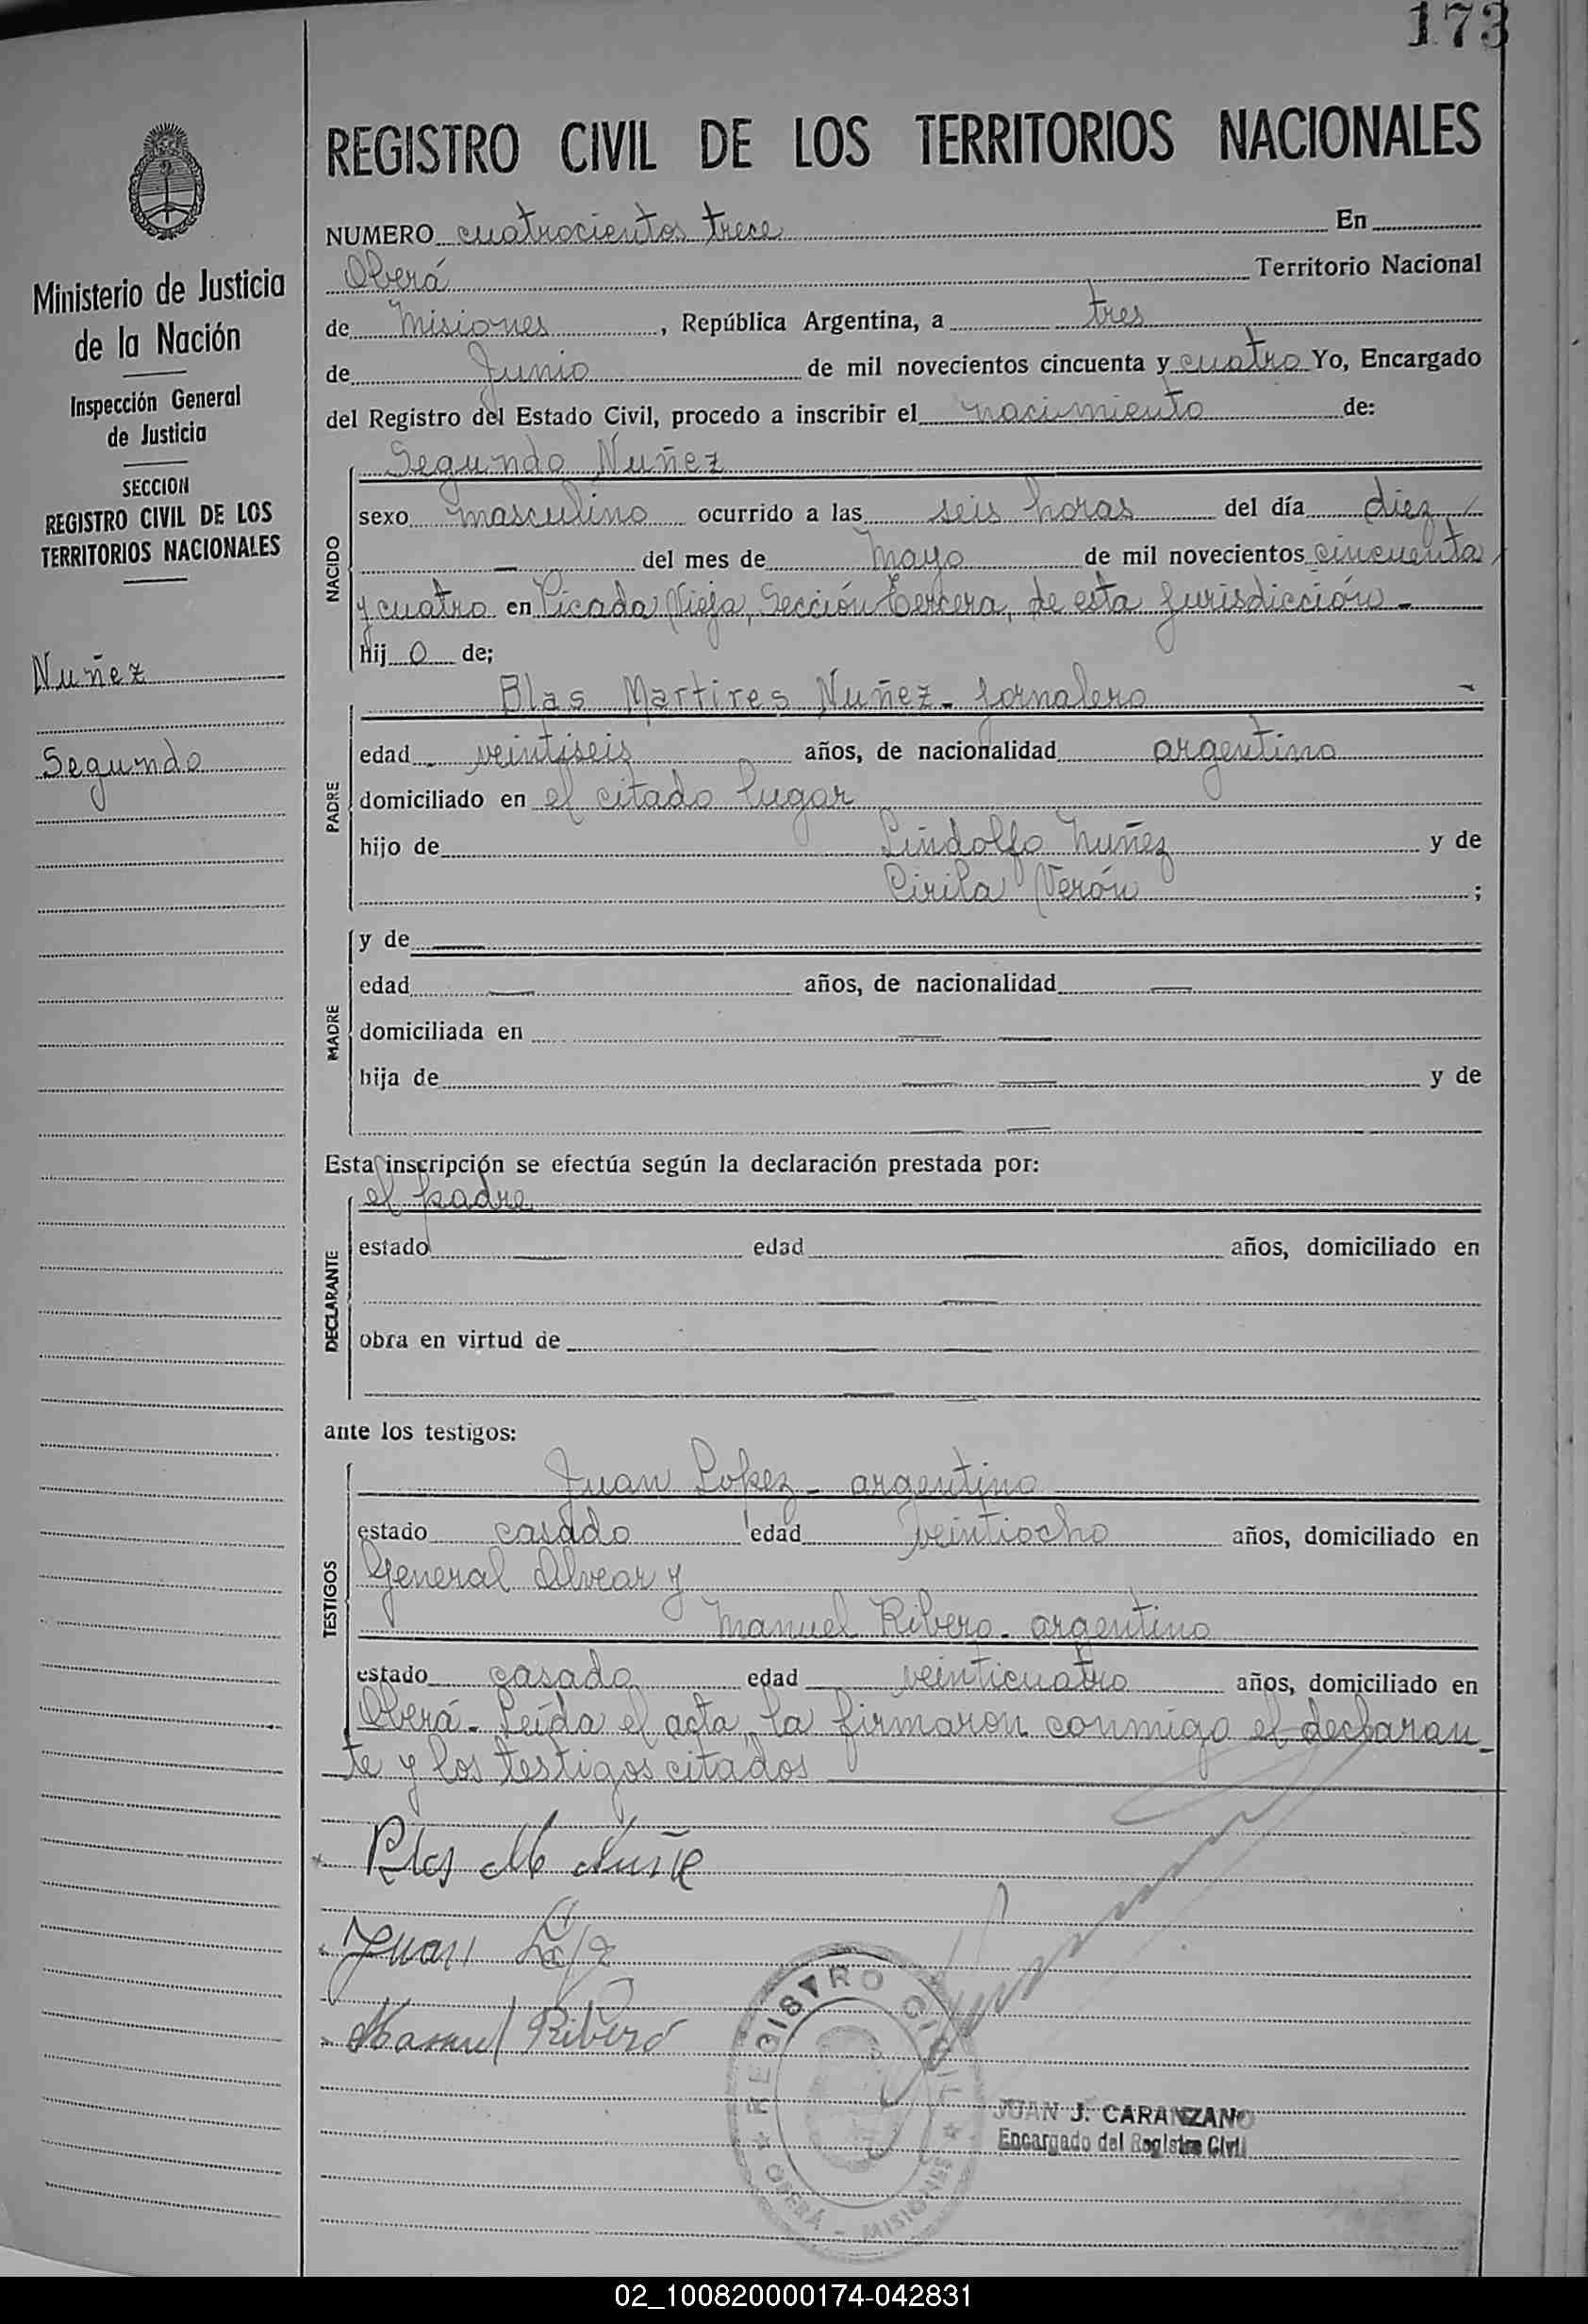 173
REGISTRO CIVIL DE LOS TERRITORIOS NACIONALES
Ministerio de Justicia
de la Nación
Inspección General
de Justicia
SECCION
REGISTRO CIVIL DE LOS
TERRITORIOS NACIONALES
Nuñez
Segundo
NUMERO cuatrocientos trece En
Oberá Territorio Nacional
de Misiones, República Argentina, a tres
de Junio de mil novecientos cincuenta y cuatro Yo, Encargado
del Registro del Estado Civil, procedo a inscribir el nacimiento de:
NACIDO
Segundo Nuñez
sexo masculino ocurrido a las seis horas del día diez
— del mes de Mayo de mil novecientos cincuenta
y cuatro en Picada Vieja, Sección Tercera, de esta jurisdicción -
hijo de;
PADRE
Blas Martires Nuñez - jornalero
edad veintiseis años, de nacionalidad argentina
domiciliado en el citado lugar
hijo de Lindolfo Nuñez y de
Cirila Verón ;
MADRE
y de —
edad — años, de nacionalidad —
domiciliada en — —
hija de — — y de
— —
Esta inscripción se efectúa según la declaración prestada por:
DECLARANTE
el padre
estado — edad — años, domiciliado en
— —
obra en virtud de — —
— —
ante los testigos:
TESTIGOS
Juan Lopez - argentino
estado casado edad veintiocho años, domiciliado en
General Alvear y
Manuel Ribero - argentino
estado casado edad veinticuatro años, domiciliado en
Oberá - Leída el acta, la firmaron conmigo el declaran-
te y los testigos citados
Blas M Nuñe
Juan
Manuel Ribero
REGISTRO CIVIL
OBERÁ - MISIONES
JUAN J. CARANZANO
Encargado del Registro Civil
02_100820000174-042831